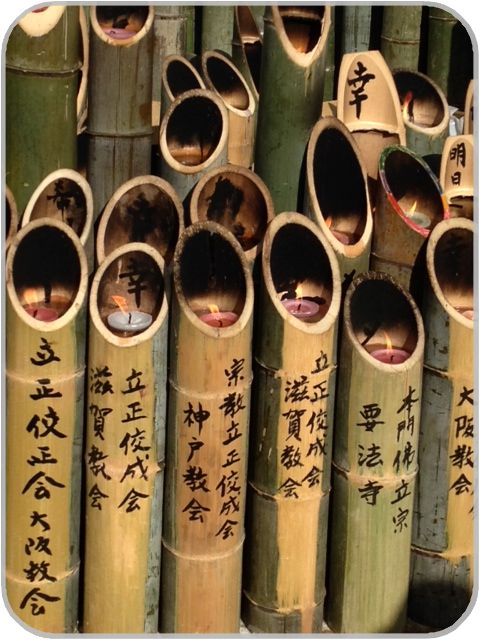 幸
明日
幸
立正佼正会大阪教会
立正佼成会
滋賀教会
宗教立正佼成会
神戸教会
立正佼成会
滋賀教会
本門佛立宗
要法寺
大阪教会